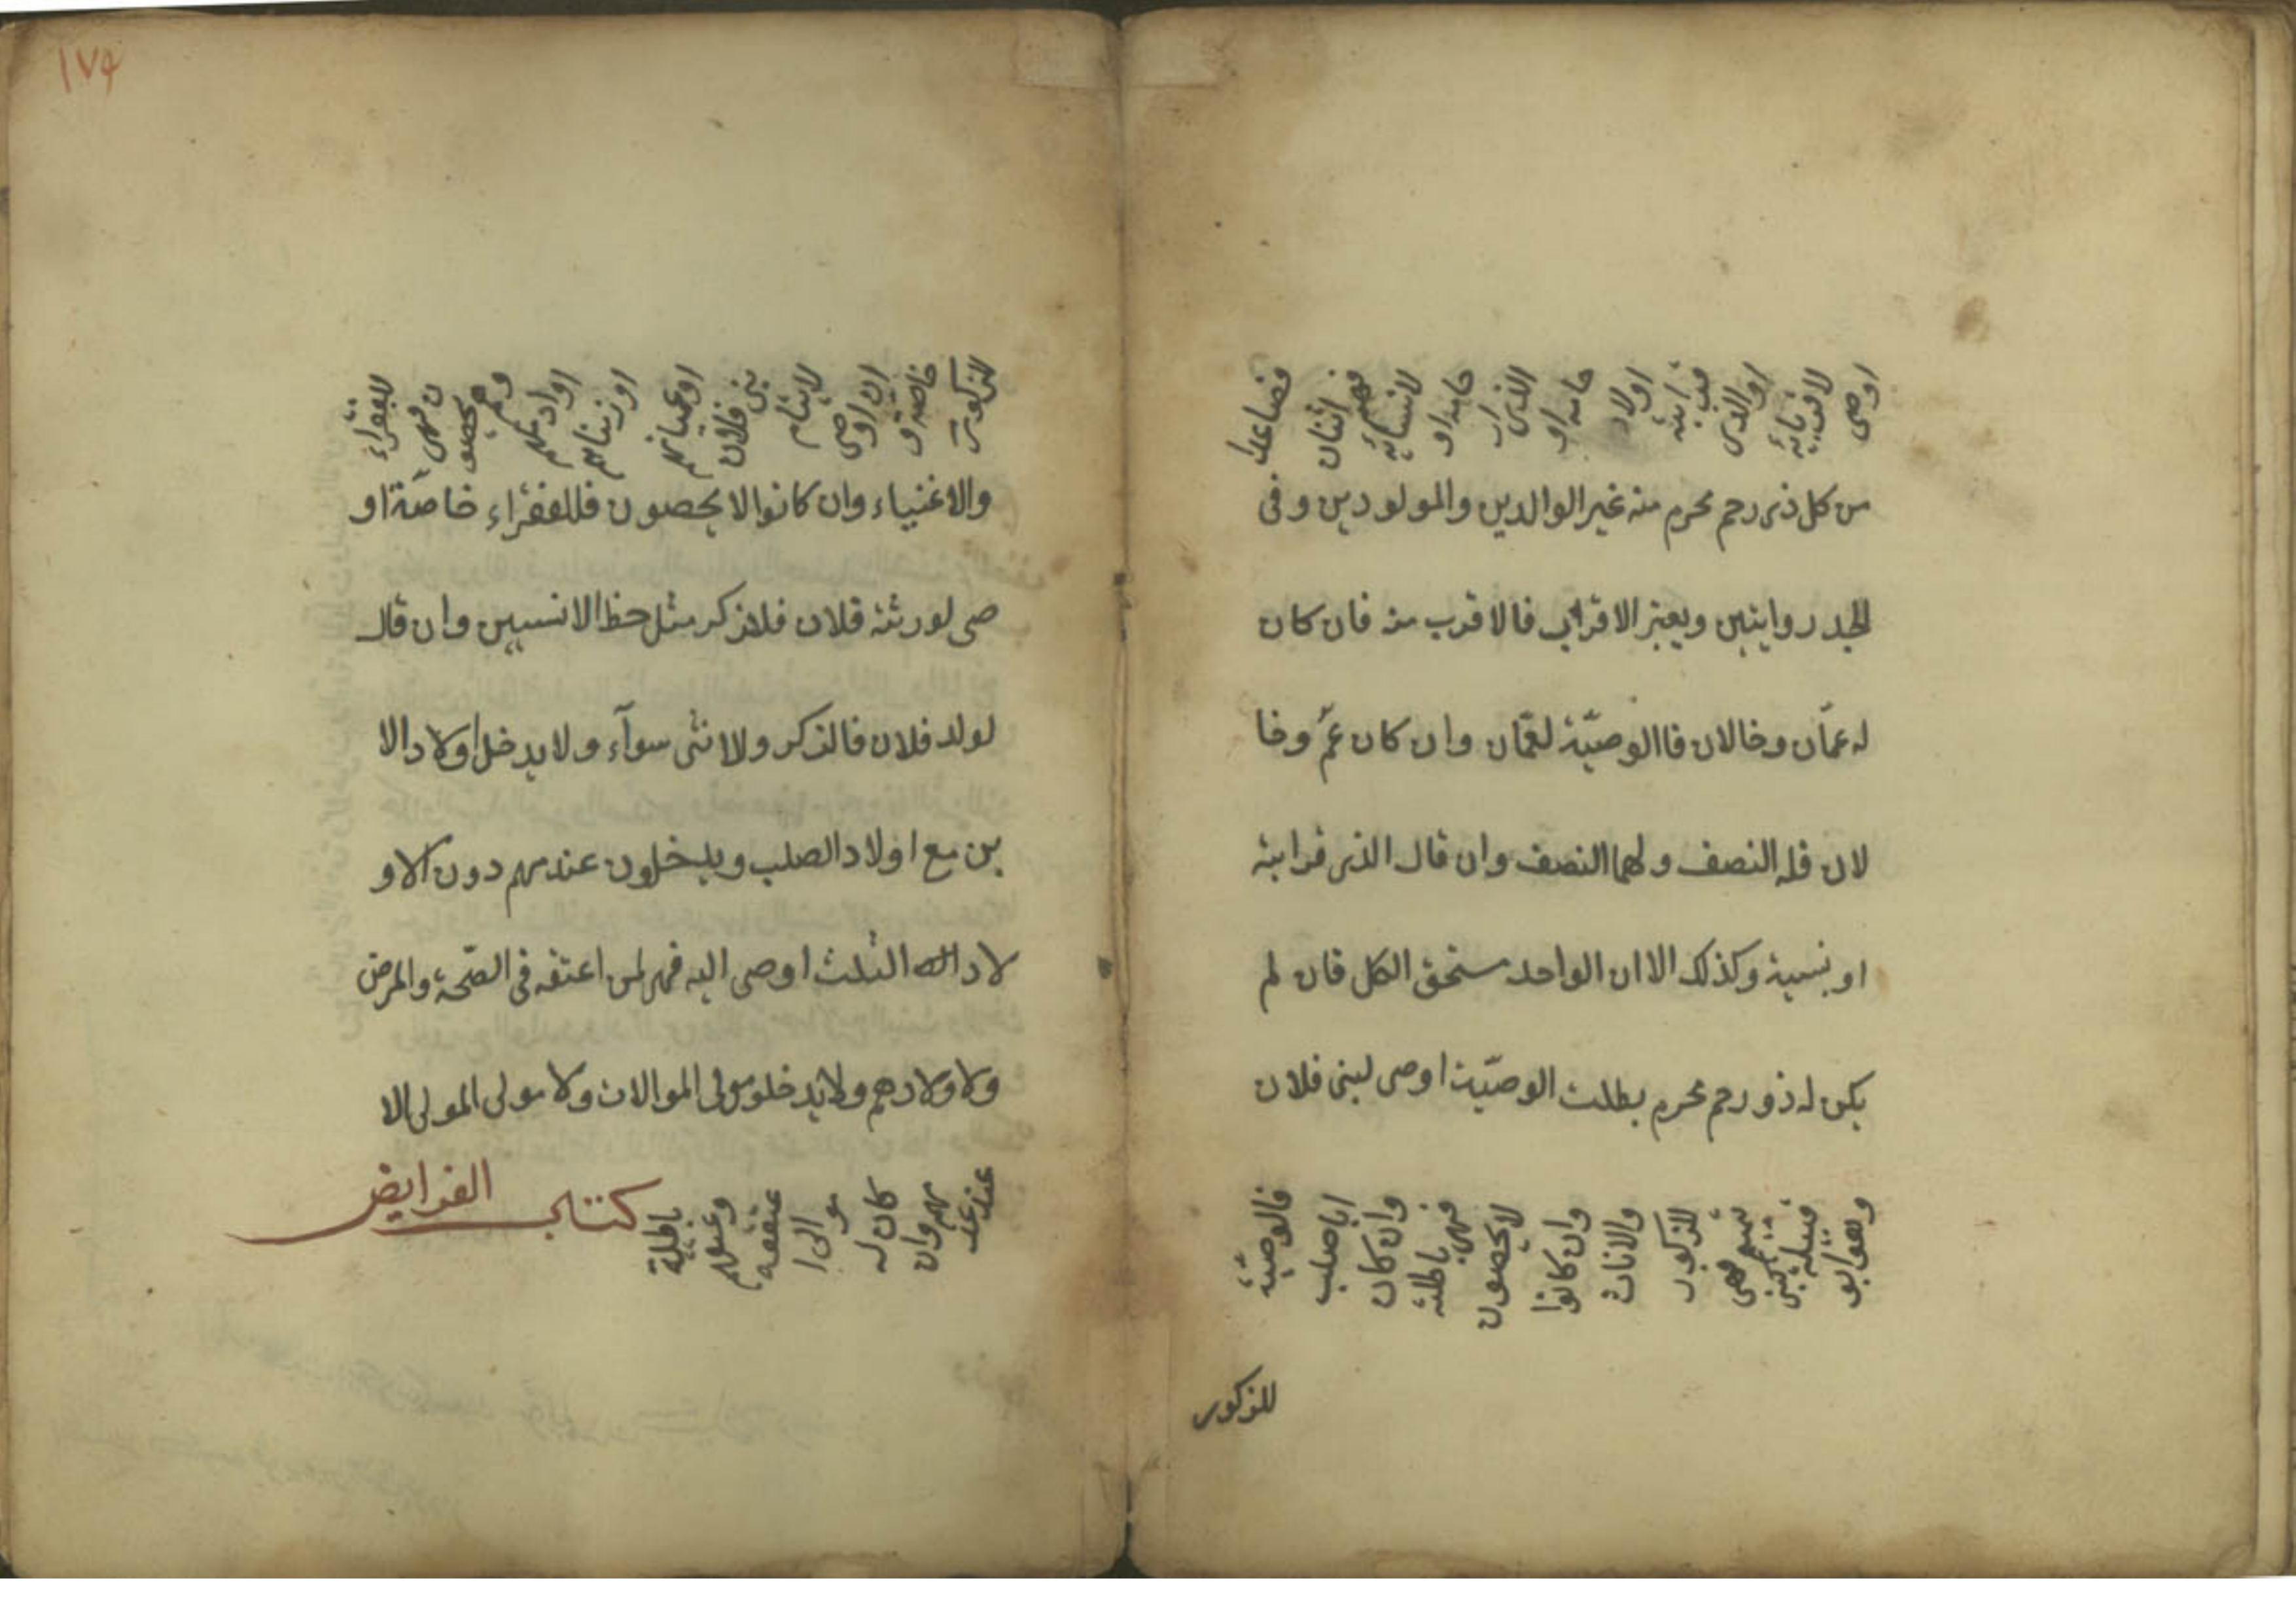 اوصى لاقربائه او لذوى قرابته اولار حامه او الذى ار حامه او لانسبائه فهم اثنان فصاعدا
من كل ذى رحم محرم منه غير الوالدين والمولودين وفى
الجد روايتين ويعتبر الاقرب فالاقرب منه فان كان
له عمّان وخالان فاالوصيّة لعمّان وان كان عمّ وخا
لان فله النصف ولهما النصف وان قال الذى قرابته
او نسبية وكذلك الا ان الواحد ستحق الكل فان لم
يكن له ذو رحم محرم بطلت الوصيّة اوصى لبنى فلان
وهو ابو قبيلة كبنى تميم فهى للذكور والاناث وان كانوا لا يحصون فهى باطلة وان كان ابا صلب فالوصيّة
للذكور
١٧۴
للذكور خاصة و ان اوصى لايتام بنى فلان او عميانهم او زمناهم او اراملهم وهم يحصون فهى للفقراء
والاغنياء وان كانوا لا يحصون فللفقراء خاصّة او
صى لورثة فلان فللذكر مثل حظ الانسيين وان قال
لولد فلان فالذكر ولانثى سوآء ولا يدخل اولاد الا
بن مع اولاد الصلب ويدخلون عندهم دون الاو
لاد الثلث اوصى اليه فهى لمن اعتقه فى الصّحة والمرض
ولاولادهم ولا يدخلو مولى الموالات ولا مولى المولى الا
عند عد مهم وان كان له موالى اعتقه وعتقهم باطلة كتاب الفرايض